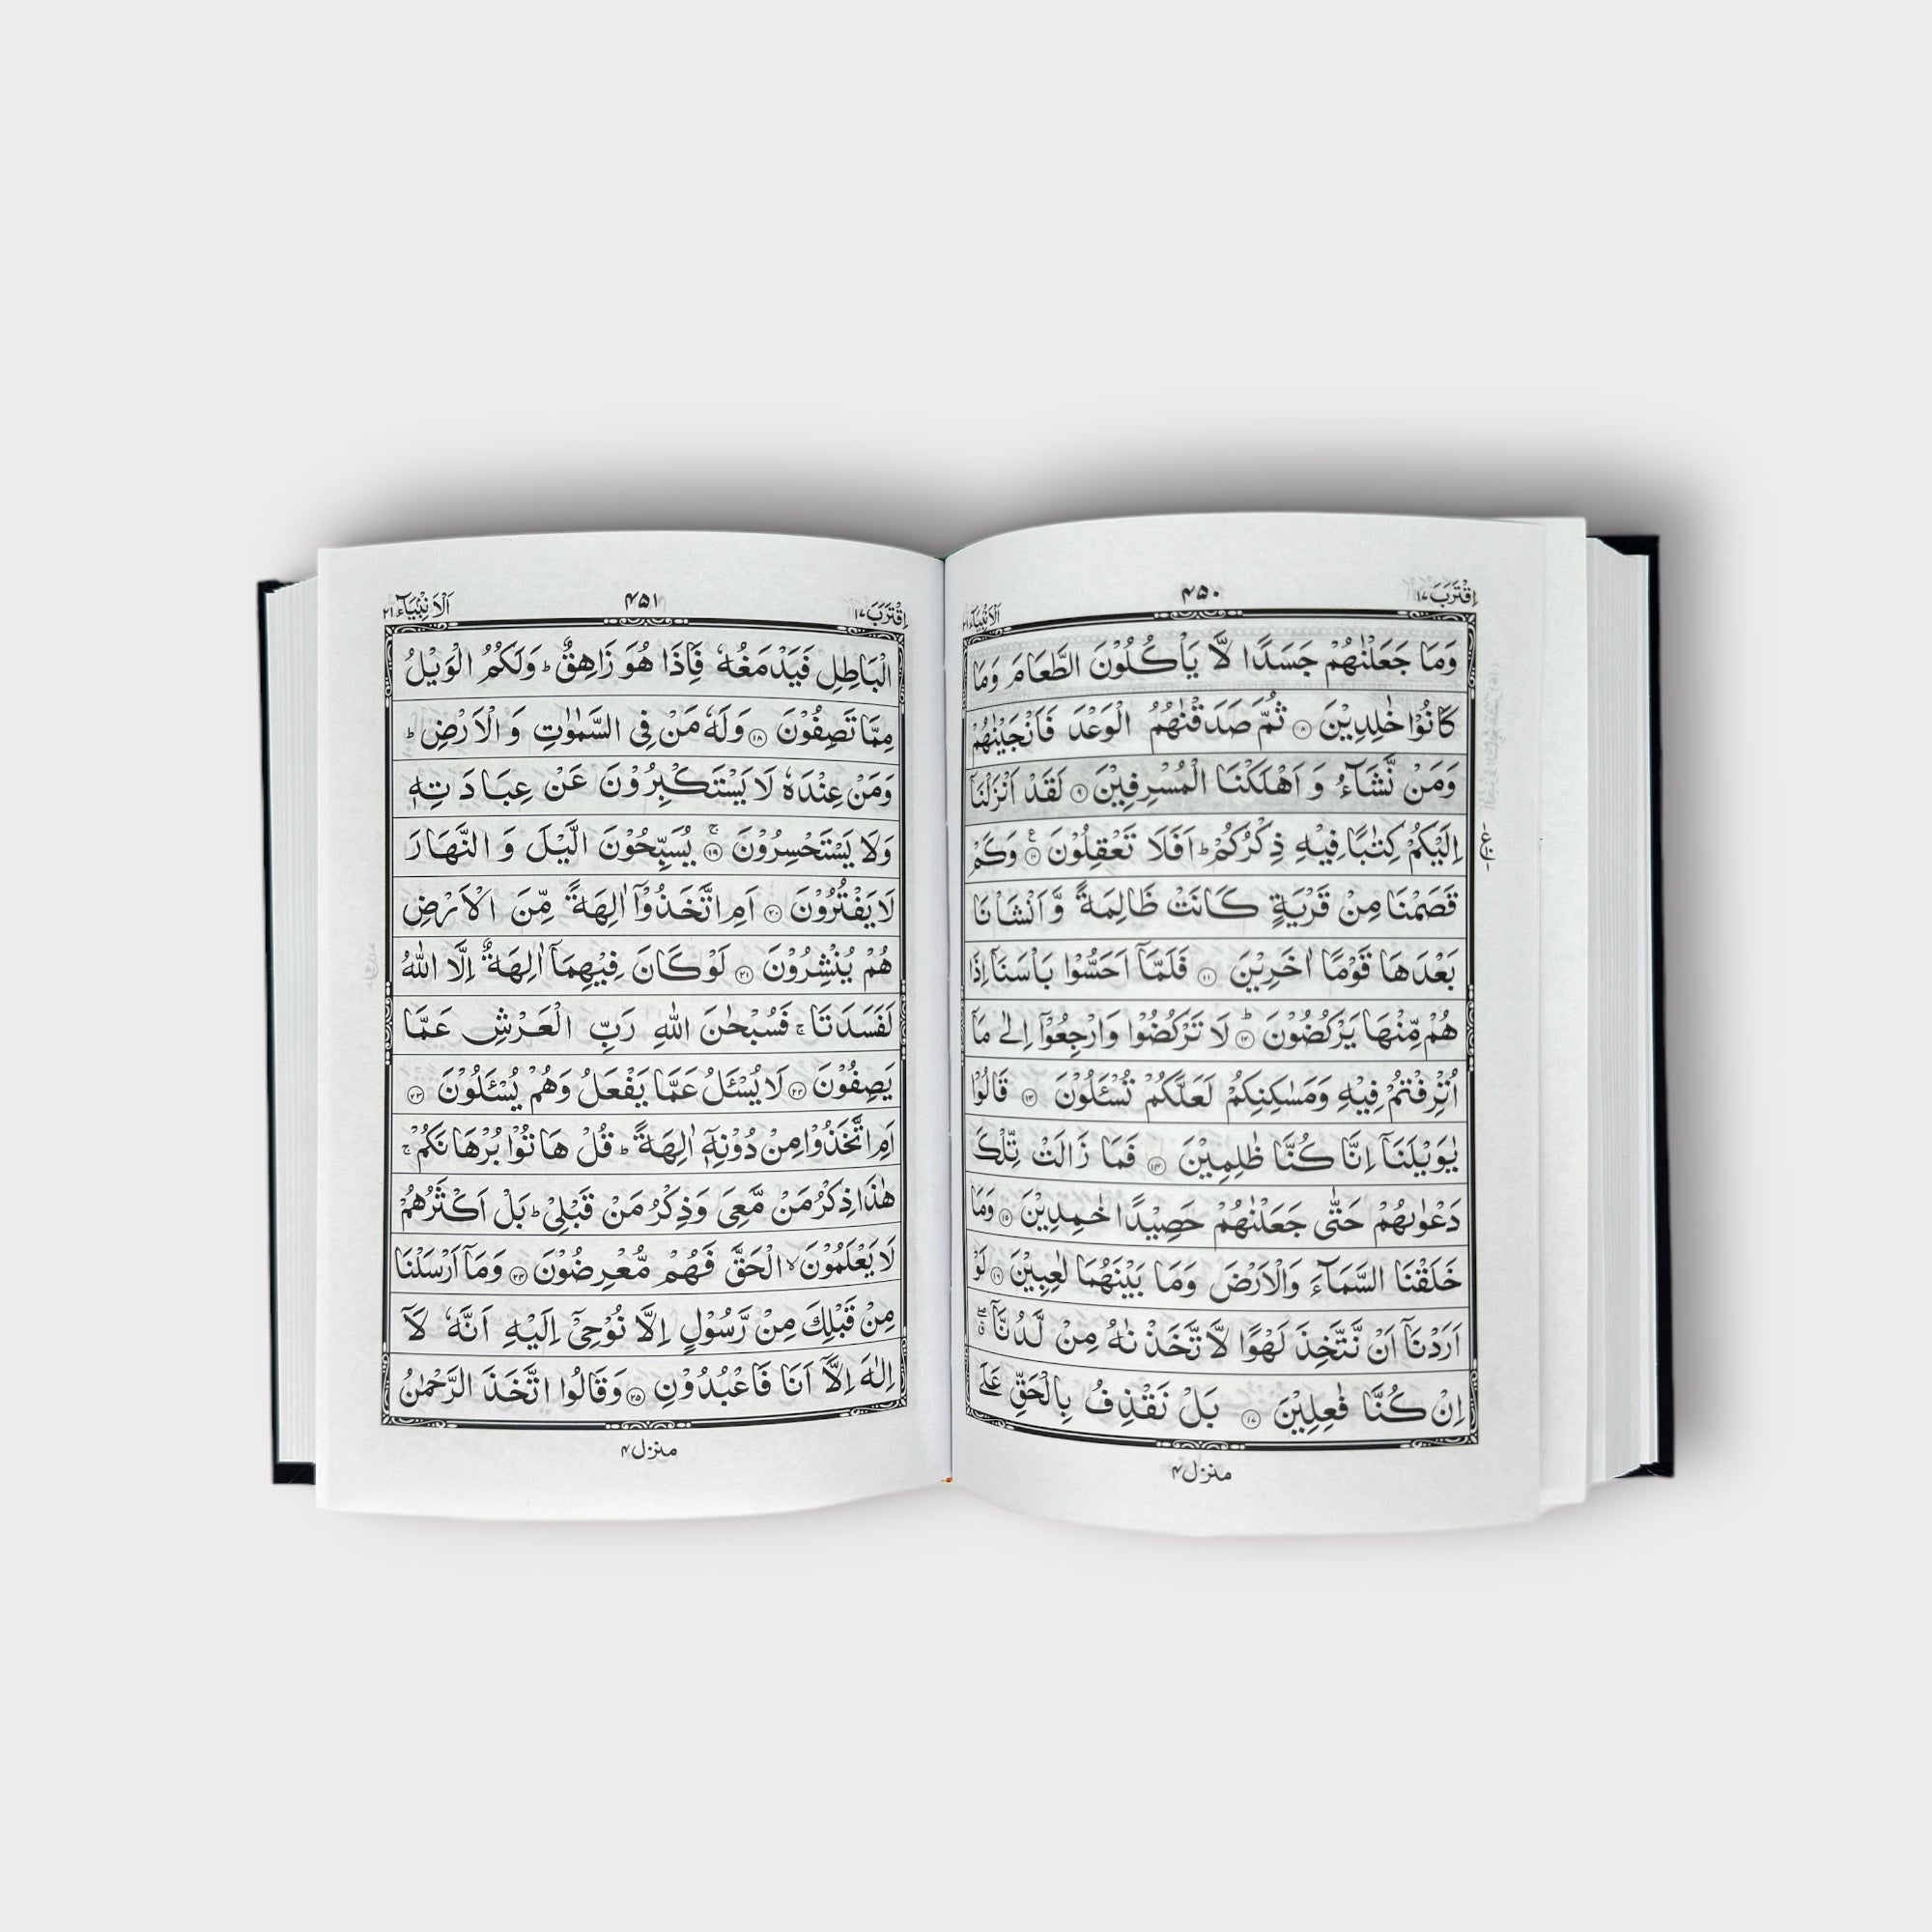 اِقْتَرَبَ ١٧
۴۵۰
اَلْاَنْۢبِيَآء ٢١
وَمَا جَعَلْنٰهُمْ جَسَدًا لَّا يَاْكُلُوْنَ الطَّعَامَ وَمَا
كَانُوْا خٰلِدِيْنَ ۝٨ ثُمَّ صَدَقْنٰهُمُ الْوَعْدَ فَاَنْجَيْنٰهُمْ
وَمَنْ نَّشَآءُ وَ اَهْلَكْنَا الْمُسْرِفِيْنَ ۝٩ لَقَدْ اَنْزَلْنَآ
اِلَيْكُمْ كِتٰبًا فِيْهِ ذِكْرُكُمْ ؕ اَفَلَا تَعْقِلُوْنَ ۝١٠ وَكَمْ
قَصَمْنَا مِنْ قَرْيَةٍ كَانَتْ ظَالِمَةً وَّ اَنْشَاْنَا
بَعْدَهَا قَوْمًا اٰخَرِيْنَ ۝١١ فَلَمَّآ اَحَسُّوْا بَاْسَنَاۤ اِذَا
هُمْ مِّنْهَا يَرْكُضُوْنَ ۝١٢ؕ لَا تَرْكُضُوْا وَارْجِعُوْٓا اِلٰى مَآ
اُتْرِفْتُمْ فِيْهِ وَمَسٰكِنِكُمْ لَعَلَّكُمْ تُسْئَلُوْنَ ۝١٣ قَالُوْا
يٰوَيْلَنَآ اِنَّا كُنَّا ظٰلِمِيْنَ ۝١٤ فَمَا زَالَتْ تِّلْكَ
دَعْوٰىهُمْ حَتّٰى جَعَلْنٰهُمْ حَصِيْدًا خٰمِدِيْنَ ۝١٥ وَمَا
خَلَقْنَا السَّمَآءَ وَالْاَرْضَ وَمَا بَيْنَهُمَا لٰعِبِيْنَ ۝١٦ لَوْ
اَرَدْنَآ اَنْ نَّتَّخِذَ لَهْوًا لَّاتَّخَذْنٰهُ مِنْ لَّدُنَّآ
اِنْ كُنَّا فٰعِلِيْنَ ۝١٧ بَلْ نَقْذِفُ بِالْحَقِّ عَلَى
منزل ۴
اِقْتَرَبَ ١٧
۴۵۱
اَلْاَنْۢبِيَآء ٢١
الْبَاطِلِ فَيَدْمَغُهٗ فَاِذَا هُوَ زَاهِقٌ ؕ وَلَكُمُ الْوَيْلُ
مِمَّا تَصِفُوْنَ ۝١٨ وَلَهٗ مَنْ فِى السَّمٰوٰتِ وَ الْاَرْضِ ؕ
وَمَنْ عِنْدَهٗ لَا يَسْتَكْبِرُوْنَ عَنْ عِبَادَتِهٖ
وَلَا يَسْتَحْسِرُوْنَ ۝١٩ۚ يُسَبِّحُوْنَ الَّيْلَ وَ النَّهَارَ
لَا يَفْتُرُوْنَ ۝٢٠ اَمِ اتَّخَذُوْٓا اٰلِهَةً مِّنَ الْاَرْضِ
هُمْ يُنْشِرُوْنَ ۝٢١ لَوْ كَانَ فِيْهِمَآ اٰلِهَةٌ اِلَّا اللّٰهُ
لَفَسَدَتَا ۚ فَسُبْحٰنَ اللّٰهِ رَبِّ الْعَرْشِ عَمَّا
يَصِفُوْنَ ۝٢٢ لَا يُسْئَلُ عَمَّا يَفْعَلُ وَهُمْ يُسْئَلُوْنَ ۝٢٣
اَمِ اتَّخَذُوْا مِنْ دُوْنِهٖٓ اٰلِهَةً ؕ قُلْ هَاتُوْا بُرْهَانَكُمْ ۚ
هٰذَا ذِكْرُ مَنْ مَّعِىَ وَذِكْرُ مَنْ قَبْلِىْ ؕ بَلْ اَكْثَرُهُمْ
لَا يَعْلَمُوْنَ ۙ الْحَقَّ فَهُمْ مُّعْرِضُوْنَ ۝٢٤ وَمَآ اَرْسَلْنَا
مِنْ قَبْلِكَ مِنْ رَّسُوْلٍ اِلَّا نُوْحِىْٓ اِلَيْهِ اَنَّهٗ لَآ
اِلٰهَ اِلَّآ اَنَا فَاعْبُدُوْنِ ۝٢٥ وَقَالُوا اتَّخَذَ الرَّحْمٰنُ
منزل ۴